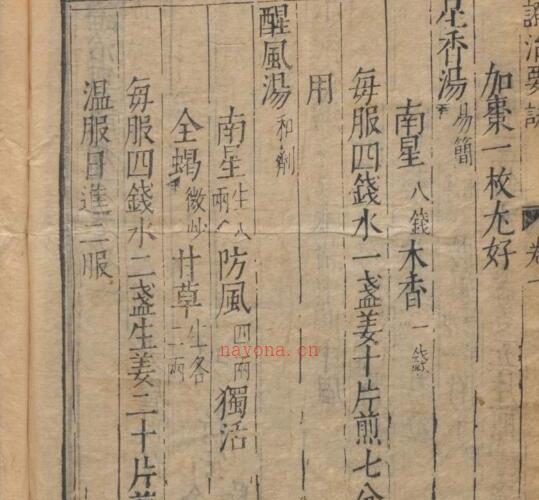 證治要訣 卷一
加棗一枚尤好
星香湯 易簡
南星 八錢 木香 一錢
每服四錢水一盞姜十片煎七分
用
醒風湯 和劑
南星 生八兩 防風 四兩 獨活
全蝎 微炒 甘草 生各二兩
每服四錢水二盞生姜二十片煎
温服日進二服
nayona.cn